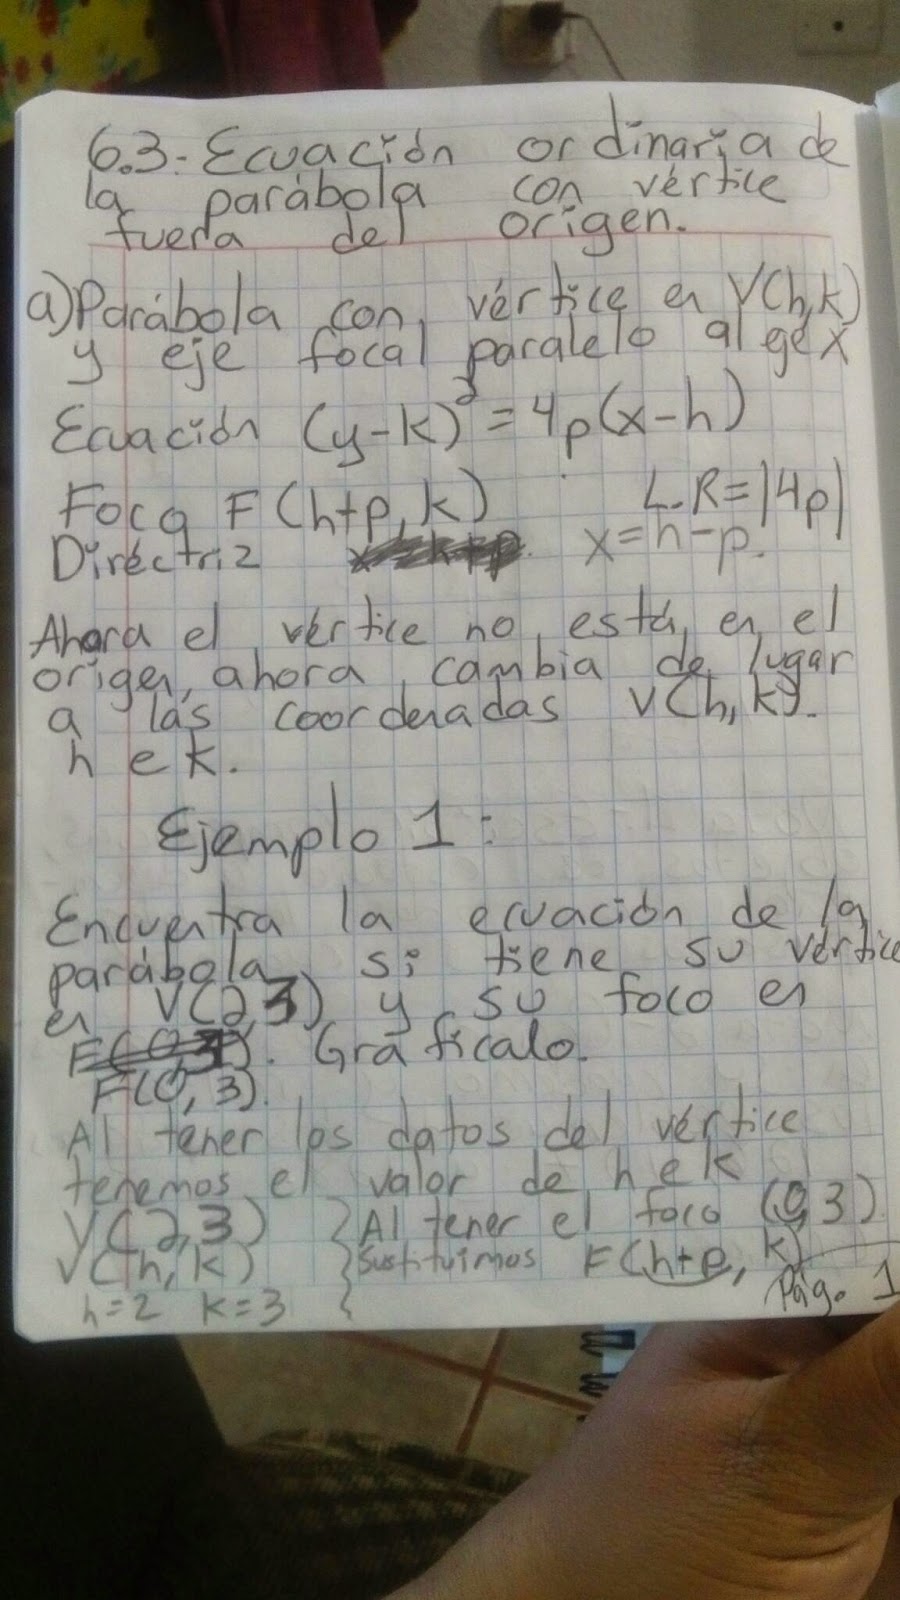 6.3.- Ecuación ordinaria de
la parábola con vértice
fuera del origen.
a) Parábola con vértice en V(h,k)
y eje focal paralelo al eje x
Ecuación (y-k)² = 4p(x-h)
Foco F(h+p,k) L.R=|4p|
Diréctriz x=h-p.
Ahora el vértice no está en el
origen, ahora cambia de lugar
a las coordenadas V(h,k).
h e k.
Ejemplo 1:
Encuentra la ecuación de la
parábola si tiene su vértice
en V(2,3) y su foco en
Gráficalo.
F(0,3).
Al tener los datos del vértice
tenemos el valor de h e k
V(2,3) } Al tener el foco (0,3)
V(h,k) } Sustituimos F(h+p,k)
h=2 k=3
Pág. 1